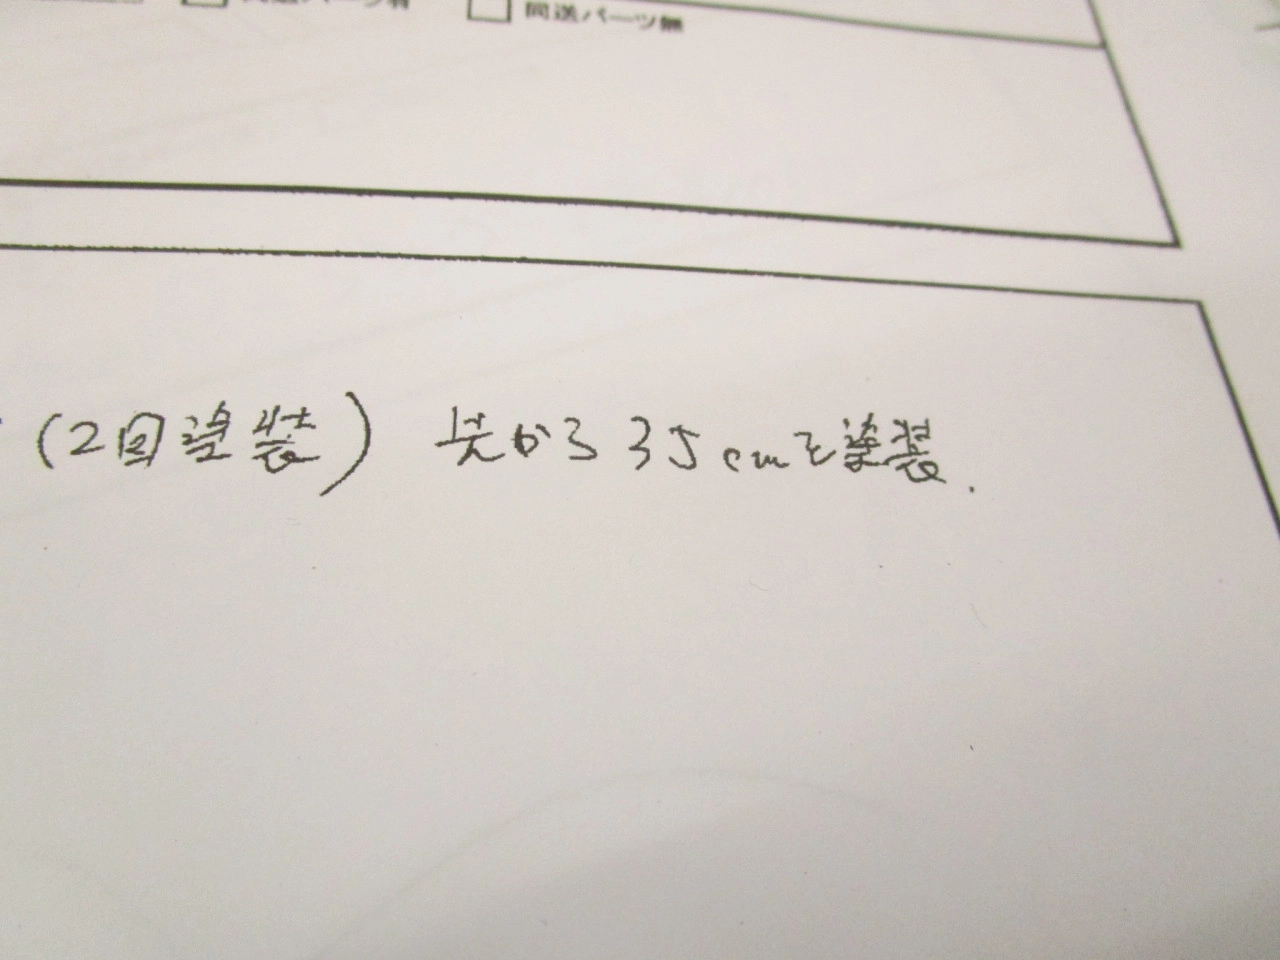 同送パーツ有 同送パーツ無
(2回塗装) 先から 35cmを塗装.